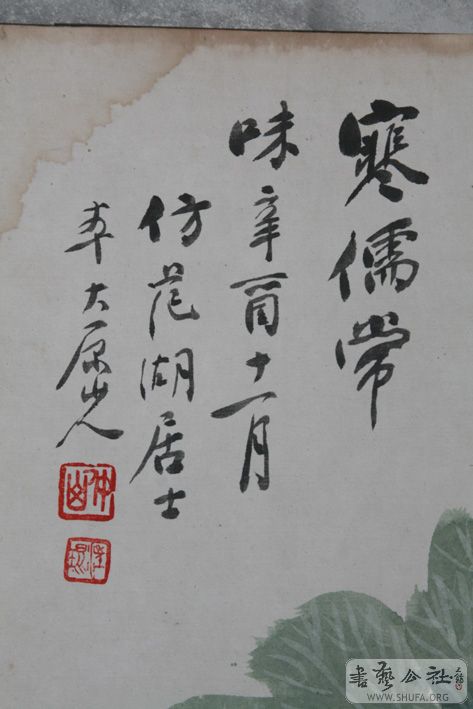 寒儒常
味辛酉十一月
仿范湖居士
大原山人
書藝公社
WWW.SHUFA.ORG